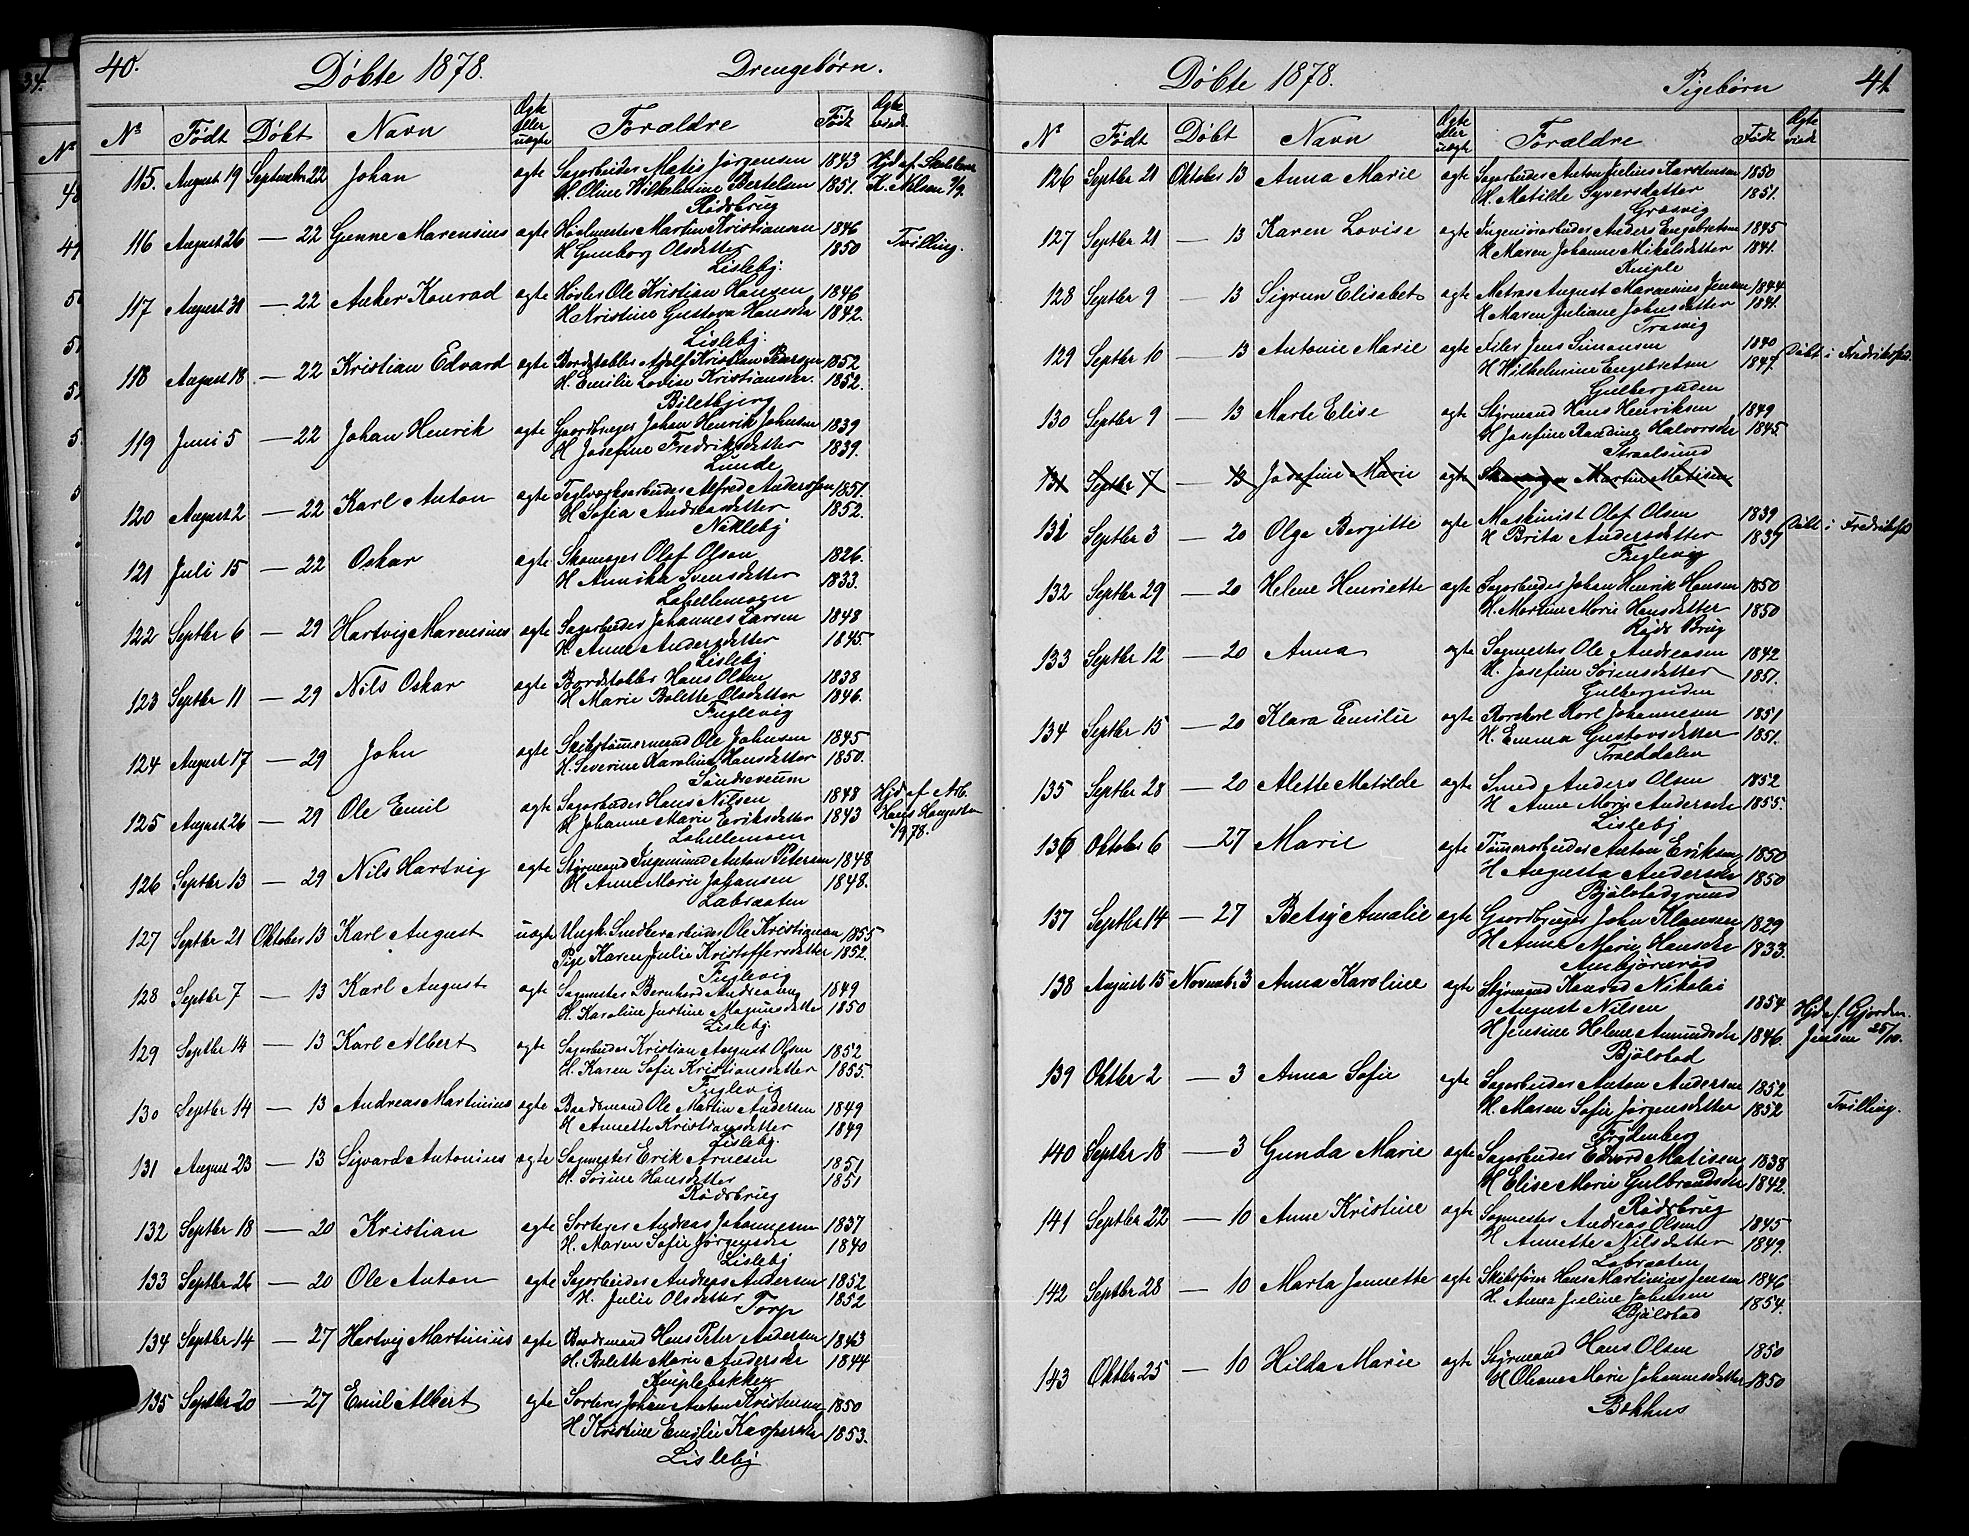 40.
Döbte 1878.
Drengebørn.
No Födt Döbt Navn Ægte eller uægte Forældre Födt
115. August 19 September 22 Johan ægte Sagarbeider Matis Jörgensen 1843 Hjd af
H. Oline Wilhelmine Bertelsen 1851. K. Nilsen
Rödsbrug
116 August 26 — 22 Gunne Marensius ægte Hövlmester Martin Kristiansen 1846 Tvilling.
H Gunborg Olsdatter 1850
Lisleby.
117 August 31 — 22 Anker Konrad ægte Hövler Ole Kristian Hansen 1846
H Kristine Gustava Hansdr 1842.
Lisleby.
118 August 18. — 22 Kristian Edvard ægte Bordstabler Adolf Kristian Pedersen 1852
H. Emilie Lovise Kristiansdr. 1852.
Biletbjerg
119 Juni 5 — 22 Johan Henrik ægte Gaardbruger Johan Henrik Johnsen 1839
H Josefine Fredriksdatter 1839.
Lunde
120 August 2 — 22 Karl Anton ægte Teglværksarbeider Alfred Anderssen 1851.
H Sofia Andreasdatter 1852.
Nekleby
121 Juli 15 — 22 Oskar ægte Skomager Olof Olsen 1826.
H Annika Svensdatter 1833.
Labellemoen
122 Septbr 6 — 29 Hartvig Marensius ægte Sagarbeider Johannes Larsen 1848
H Anne Andersdatter 1845.
Lisleby
123 Septbr 11 — 29 Nils Oskar ægte Bordstabler Hans Olsen 1838
H Marie Bolette Olsdatter 1846.
Fuglevig
124 August 17 — 29 John ægte Skibstömmermand Ole Johnsen 1845
H. Severine Karoline Hansdatter 1850.
Söndreveum
125 August 26 — 29 Ole Emil ægte Sagarbeider Hans Nilsen 1848 Hjd af Arb
H Johanne Marie Eriksdatter 1843 Hans
Labellemoen 78.
126 Septbr 13 — 29 Nils Hartvig ægte Styrmand Ingemund Anton Petersen 1848
H Anne Marie Johansen 1848.
Labraaten
127 Septbr 21 Oktober 13 Karl August uægte Ungk. Snedkerarbeider Ole Kristiansen 1855
Pige Karen Julie Kristoffersdatter 1852.
Fuglevig
128 Septbr 7 — 13 Karl August ægte Sagmester Bernhard Andreasen 1849
H. Karoline Justine Magnusdatter 1850
Lisleby.
129 Septbr 14 — 13 Karl Albert ægte Sagarbeider Kristian August Olsen 1852
H. Karen Sofie Kristiansdatter 1855.
Fuglevig
130 Septbr 14 — 13 Andreas Martinius ægte Baadsmand Ole Martin Andersen 1849
H Annette Kristiansdatter 1849
Lisleby.
131 August 23 — 13 Sigvard Antonius ægte Sagmester Erik Arnesen 1851
H. Sörine Hansdatter 1851
Rödsbrug
132 Septbr 18 — 20 Kristian ægte Sorterer Andreas Johannesen 1837
H. Maren Sofie Jörgensdr 1840
Lisleby
133 Septbr 26 — 20 Ole Anton ægte Sagarbeider Andreas Andersen 1852
H. Julie Olsdatter 1852
Torp
134 Septbr 14 — 27 Hartvig Martinius ægte Baadsmand Hans Peter Andersen 1843
H. Bolette Marie Andersdr 1844
Kniplebakken
135 Septbr 20 — 27 Emil Albert ægte Sorterer Johan Anton Kristensen 1850
H Kristine Emilie Kaspersdr 1853.
Lisleby
Döbte 1878.
Pigebørn
41
No Födt Döbt Navn Ægte eller uægte Forældre Födt
126 Septbr 21 Oktober 13 Anna Marie ægte Sagarbeider Anton Julius Karstensen 1850
H. Matilde Syversdatter 1851.
Græsvig
127 Septbr 21 — 13 Karen Lovise ægte Ingeniörarbeider Anders Engebretsen 1845
H Maren Johanne Mikalsdatter 1841.
Kniple
128 Septbr 9 — 13 Sigrun Elisabet ægte Matros August Marensius Jensen 1844
H Maren Juliane Johnsdatter 1841.
Trosvig
129 Septbr 10 — 13 Antonie Marie ægte Filer Jens Simonsen 1840 Döbt i Fredrikstad
H Wilhelmine Engebretsen 1847.
Gulbergsuden
130 Septbr 9 — 13 Marte Elise ægte Styrmand Hans Henriksen 1849
H Josefine Randine Halvorsdr 1845.
Straalsund
131 Septbr 7 — 13 Josefine Marie ægte Martin Matisen
131 Septbr 3 — 20 Olga Bergitte ægte Maskinist Olof Olsen 1839 Döbt i Fredrikstad
H Brita Andersdatter 1837
Fuglevig
132 Septbr 29 — 20 Helene Henriette ægte Sagarbeider Johan Henrik Hansen 1850
H. Martine Marie Hansdatter 1850
Röds Brug
133 Septbr 12 — 20 Anna ægte Sagmester Ole Andreasen 1842
H. Josefine Sörensdatter 1851.
Gulbergsuden
134 Septbr 15 — 20 Klara Emilie ægte Karl Johannesen 1851
H. Emma Gustavsdatter 1851.
Traalddalen
135 Septbr 28 — 20 Alette Matilde ægte Smed Anders Olsen 1852
H Anne Marie Andersdr 1855.
Lisleby
136 Oktober 6 — 27 Marie ægte Tömmerarbeider Anton Eriksen 1850
H Augusta Andersdr 1850
Bjölstadgrund
137 Septbr 14 — 27 Betsy Amalie ægte Gaardbruger John Klausen 1829
H Anne Marie Hansdr 1833.
Ambjörnröd
138 August 15 Novembr 3 Anna Karoline ægte Styrmand Konrad Nikolai
August Nilsen 1854 Hjd af Gjordem.
H Jensine Helene Amundsdr 1846. Jensen 25/10.
Bjölstad
139 Oktbr 2 — 3 Anna Sofie ægte Sagarbeider Anton Andersen 1852
H. Maren Sofie Jörgensdatter 1852 Tvilling.
Frydenberg
140 Septbr 18 — 3 Gunda Marie ægte Sagarbeider Edvard Matisen 1838
H Elise Marie Gulbrandsdr 1842.
Rödsbrug
141 Septbr 22 — 10 Anne Kristine ægte Sagmester Andreas Olsen 1845
H Annette Nilsdatter 1849.
Labraaten
142 Septbr 28 — 10 Marta Jannette ægte Skibsförer Hans Martinius Jensen 1846
H. Anna Juline Johnsen 1854.
Bjölstad
143 Oktbr 25 — 10 Hilda Marie ægte Styrmand Hans Olsen 1850
H Oleane Marie Johannesdatter 1850
Bakhus